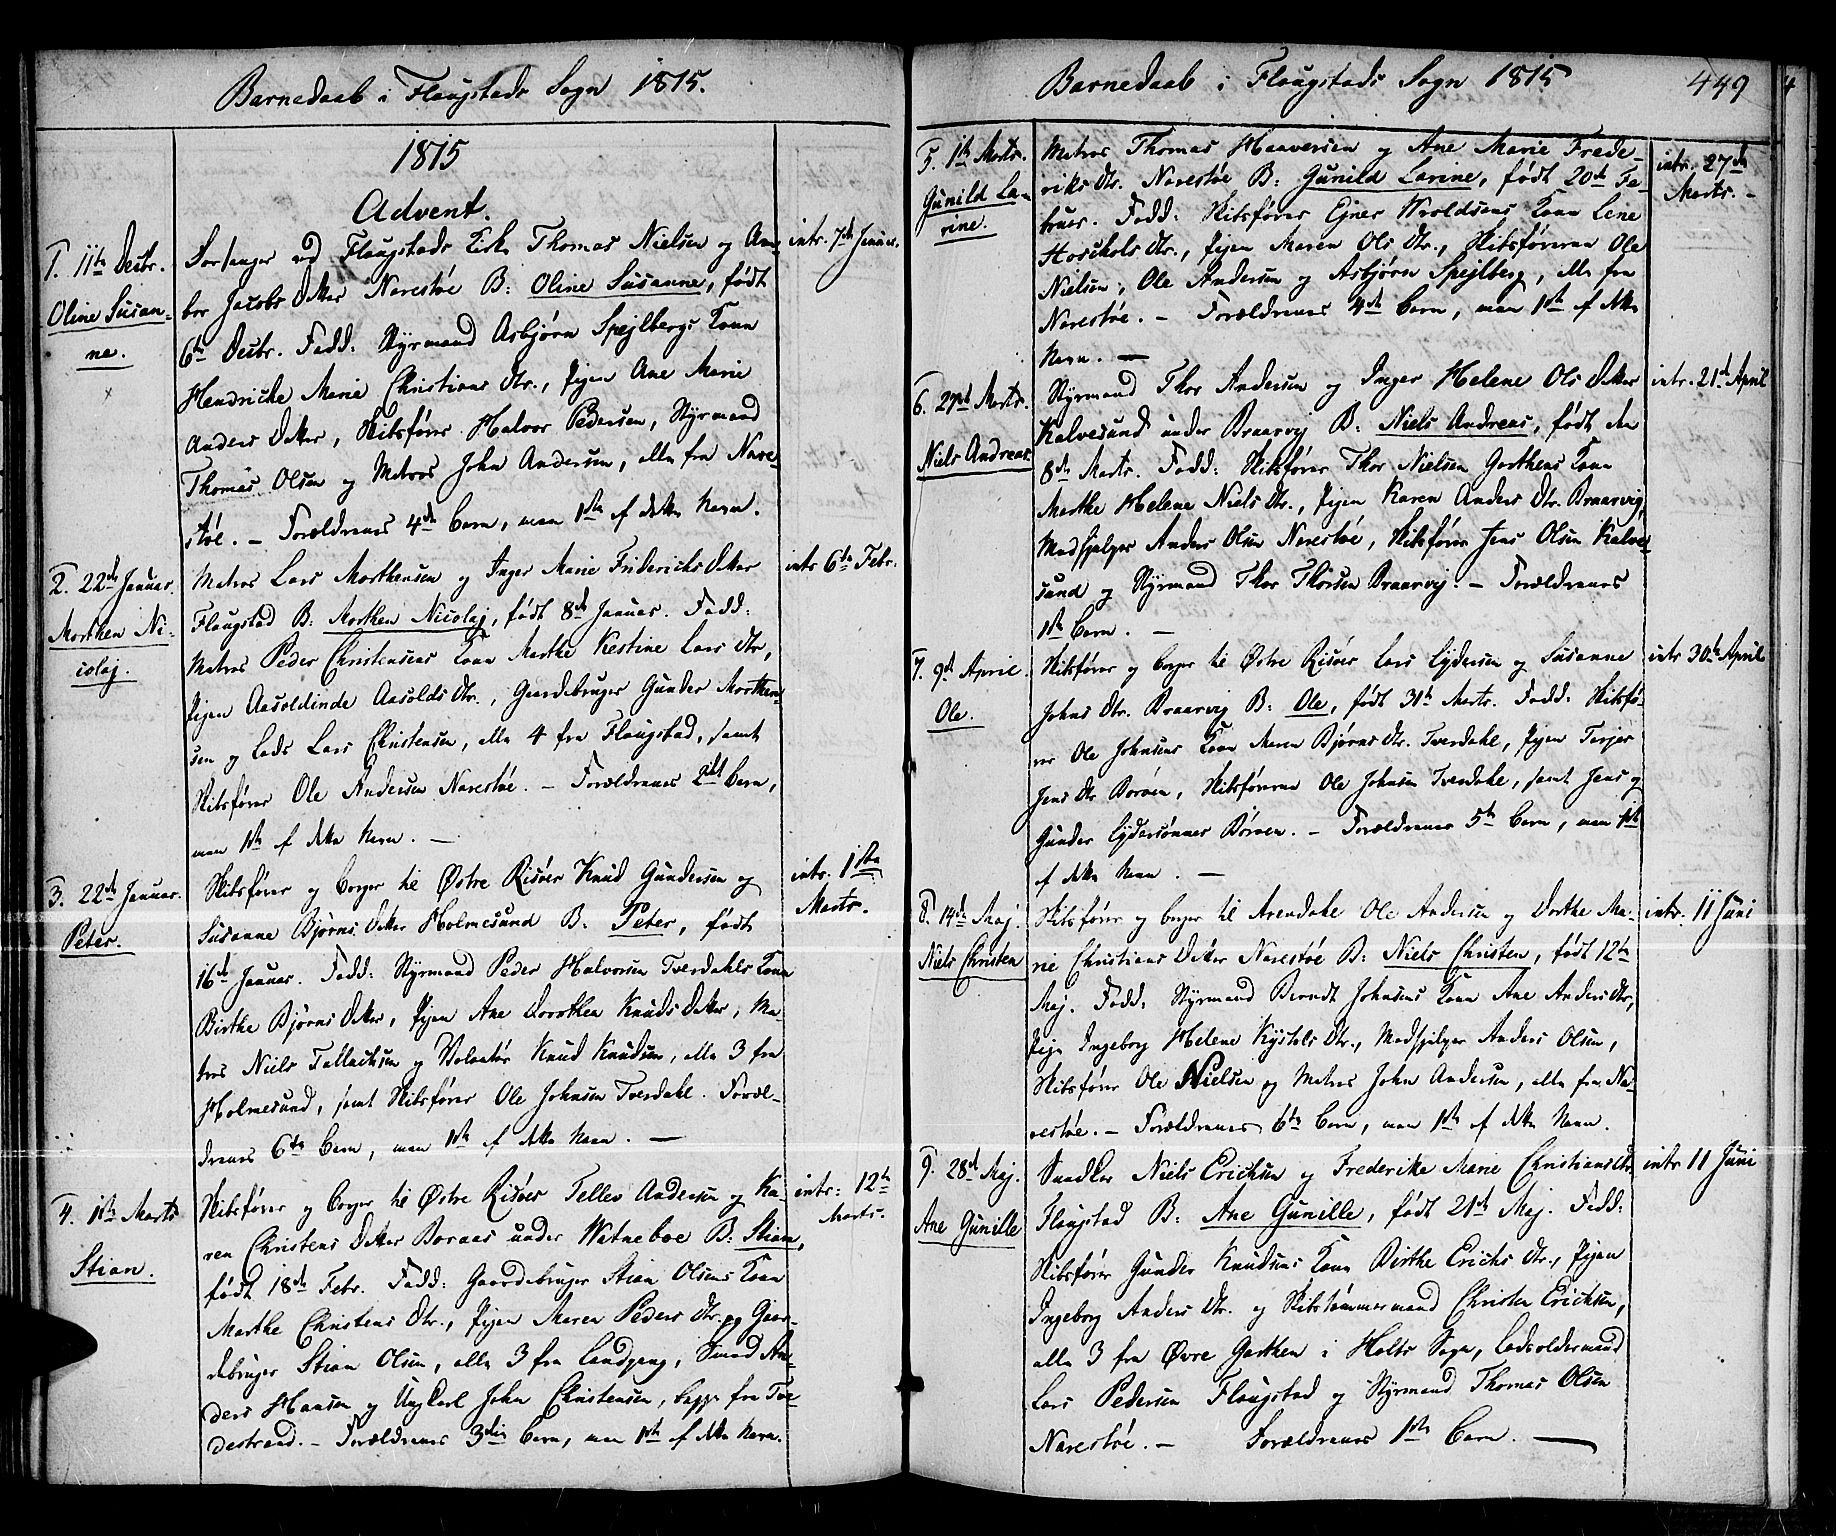 Barnedaab i Flaugstads Sogn 1815.
1815
Advent.
1. 11te Decbr.
Oline Susan-
ne.
Forsanger ved Flaugstads Kirke Thomas Nielsen og Am-
bor Jacobs Datter Narestøe B: Oline Susanne, født
6te Decbr. Fadd: Styrmand Asbjørn Spejlbergs Kone
Hendricke Marie Christians Dtr., Pigen Ane Marie
Anders Datter, Skibsfører Halvor Pedersen, Styrmand
Thomas Olsen og Matros John Andersen, alle fra Nare-
støe. – Forældrenes 4de Barn, men 1ste af dette Navn.
intr. 7de Januar.
2. 22de Januar.
Morthen Ni-
colaj.
Matros Lars Morthensen og Inger Marie Friderichs Datter
Flaugstad B: Morthen Nicolaj, født 8de Januar. Fadd:
Matros Peder Christensens Kone Marthe Kestine Lars Dtr,
Pigen Aasoldinde Aasolds Dtr., Gaardbruger Gunder Morthen-
sen og Lods Lars Christensen, alle 4 fra Flaugstad, samt
Skibsfører Ole Andersen Narestøe. – Forældrenes 2det Barn,
men 1ste af dette Navn. –
intr 6te Febr.
3. 22de Januar.
Peter.
Skibsfører og Borger til Østre Risöer Knud Gundersen og
Susanne Bjørns Datter Holmesund B. Peter, født
16de Januar. Fadd: Styrmand Peder Halvorsen Tverdahls Kone
Birthe Bjørns Datter, Pigen Ane Dorothea Knuds Datter, Ma-
tros Niels Tellachsen og Volontør Knud Knudsen, alle 3 fra
Holmesund, samt Skibsfører Ole Johnsen Tverdahl. Foræl-
drenes 6te Barn, men 1ste af dette Navn. –
intr. 1ste
Marts.
4. 1ste Marts
Stian.
Skibsfører og Borger til Østre Risöer Tellev Andersen og Ka-
ren Christens Datter Boraas under Watneboe B: Stian,
født 18de Febr. Fadd: Gaardbruger Stian Olsens Kone
Marthe Christens Dtr., Pigen Maren Peders Dtr. og Gaar-
debruger Stian Olsen, alle 3 fra Landgang, Smed An-
ders Hansen og Ungkarl John Christensen, begge fra Tve-
destrand. – Forældrenes 3die Barn, men 1ste af dette Navn.
intr: 12te
Marts.
Barnedaab i Flaugstads Sogn 1815
449
5. 1ste Marts.
Gunild La-
rine.
Matros Thomas Haaversen og Ane Marie Frede-
riks Dtr. Narestøe B: Gunild Larine, født 20de Fe-
bruar. Fadd: Skibsfører Ejner Wroldsens Kone Lene
Hosckols Dtr., Pigen Maren Ols Dtr., Skibsførerne Ole
Nielsen, Ole Andersen og Asbjørn Spejlberg, alle fra
Narestøe. – Forældrenes 4de Barn, men 1ste af dette
Navn. –
intr. 27de
Marts. –
6. 27de Marts.
Niels Andreas
Styrmand Thor Andersen og Inger Helene Ols Datter
Kalvesund under Braarvij B: Niels Andreas, født den
8de Marts. Fadd: Skibsfører Thor Nielsen Garthens Kone
Marthe Helene Niels Dtr., Pigen Karen Anders Dtr. Braarvig,
Medhjelper Anders Olsen Narestøe, Skibsfører Jens Olsen Kalve-
sund og Styrmand Thor Thorsen Braarvij. – Forældrenes
1ste Barn. –
intr. 21de April
7. 9de April.
Ole.
Skibsfører og Borger til Østre Risöer Lars Lydersen og Susanne
Johns Dtr. Braarvij B: Ole, født 31te Marts. Fadd: Skibsfø-
rer Ole Johnsens Kone Maren Bjørns Dtr. Tverdahl, Pigen Tarjer
Jens Dtr Börøen, Skibsførerne Ole Johnsen Tverdahl, samt Jens og
Gunder Lydersønner Börøen. – Forældrenes 5te Barn, men 1ste
af dette Navn. –
intr 30te April
8. 14de Maj
Niels Christen
Skibsfører og Borger til Arendahl Ole Andersen og Dorthe Ma-
rie Christians Datter Narestøe B: Niels Christen, født 12te
Maj. Fadd: Styrmand Berndt Johnsens Kone Ane Anders Dtr,
Pige Ingeborg Helene Kystels Dtr., Medhjelper Anders Olsen,
Skibsfører Ole Nielsen og Matros John Andersen, alle fra Na-
restøe. – Forældrenes 6te Barn, men 1ste af dette Navn.
intr. 11 Juni
9. 28de Maj.
Ane Gunille
Snedker Niels Erichsen og Frederikke Marie Christians Dtr
Flaugstad B: Ane Gunille, født 21de Maj. Fadd:
Skibsfører Gunder Knudsens Kone Birthe Erichs Dtr., Pigen
Ingeborg Anders Dtr. og Skibstømmermand Christen Erichsen,
alle 3 fra Øvre Garthen i Holts Sogn, Lodsoldermand
Lars Pedersen Flaugstad og Styrmand Thomas Olsen
Narestøe. – Forældrenes 1ste Barn. –
intr 11 Juni